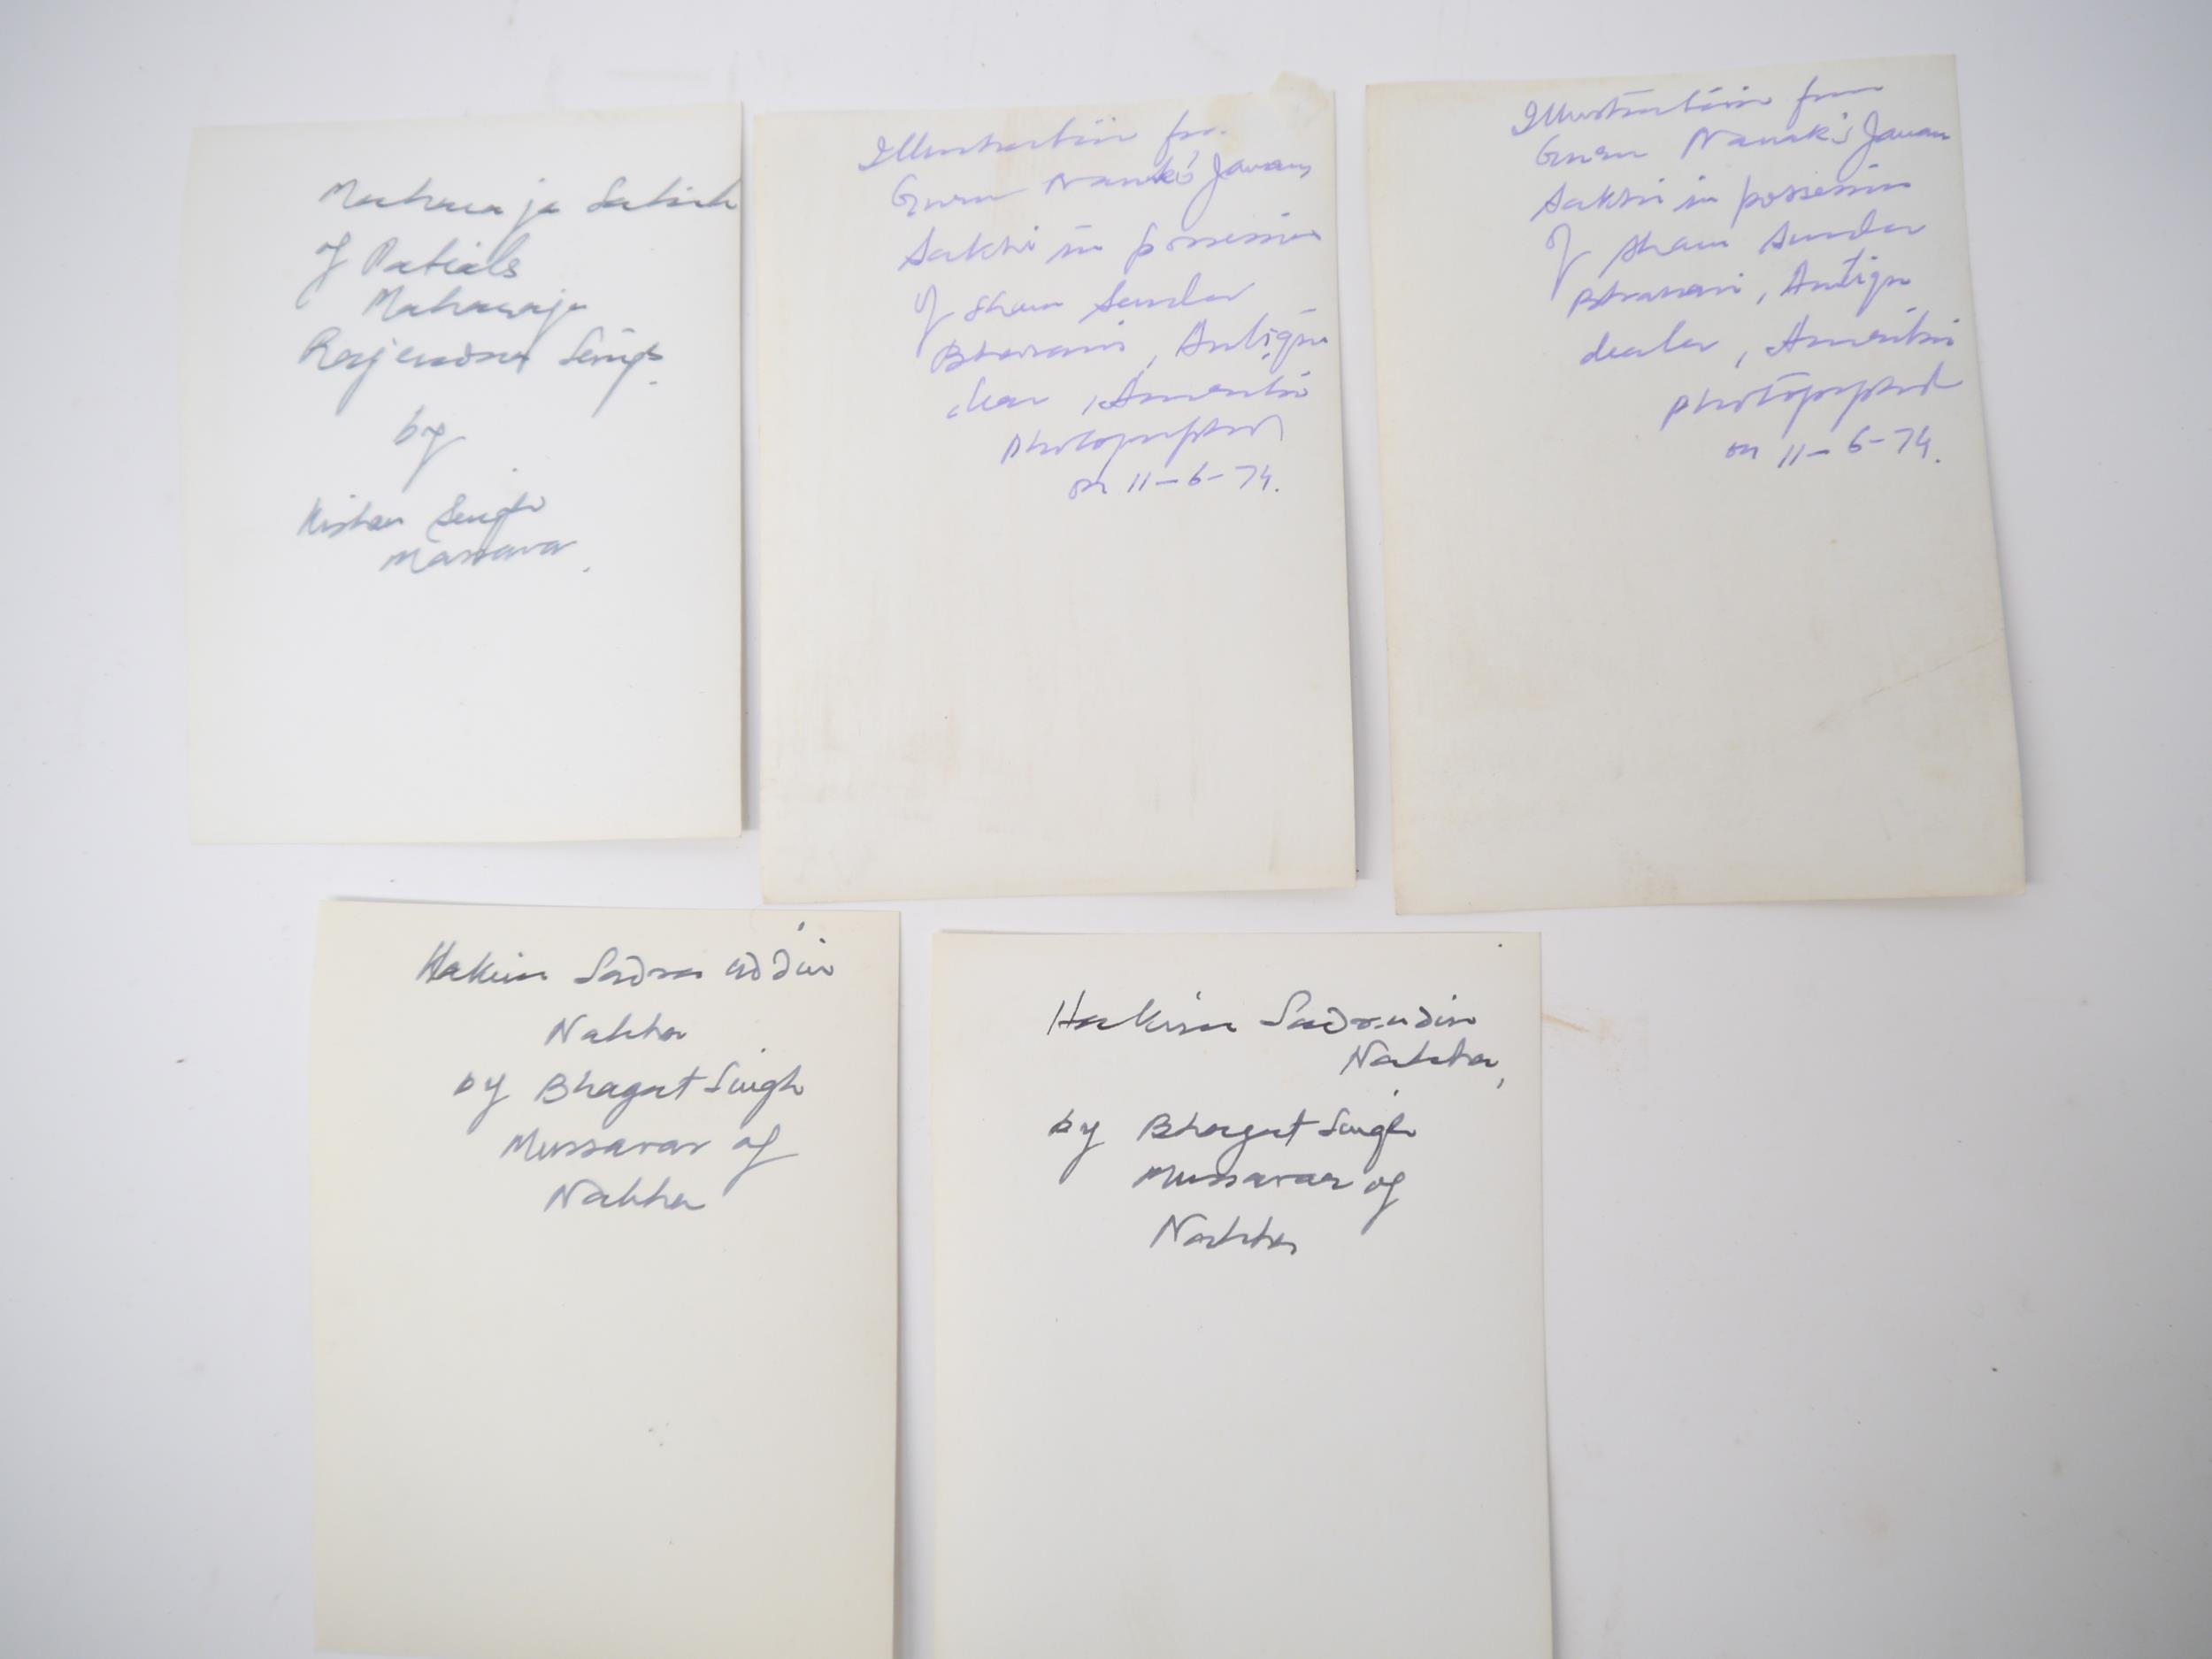 Maharaja Sahib
of Patiala
Maharaja
Rajendra Singh
by
Kishan Singh
Illustration from
Guru Nanak's Janam
Sakhi in possession
of Sham Sundar
Antique
Amritsar
photographed
on 11-6-74.
Illustration from
Guru Nanak's Janam
Sakhi in possession
of Sham Sundar
Antique
dealer, Amritsar
photographed
on 11-6-74.
Hakim Sadra uddin
Nabha
by Bhagat Singh
Mussavar of
Nabha
Hakim Sadrudin
Nabha,
by Bhagat Singh
Mussavar of
Nabha